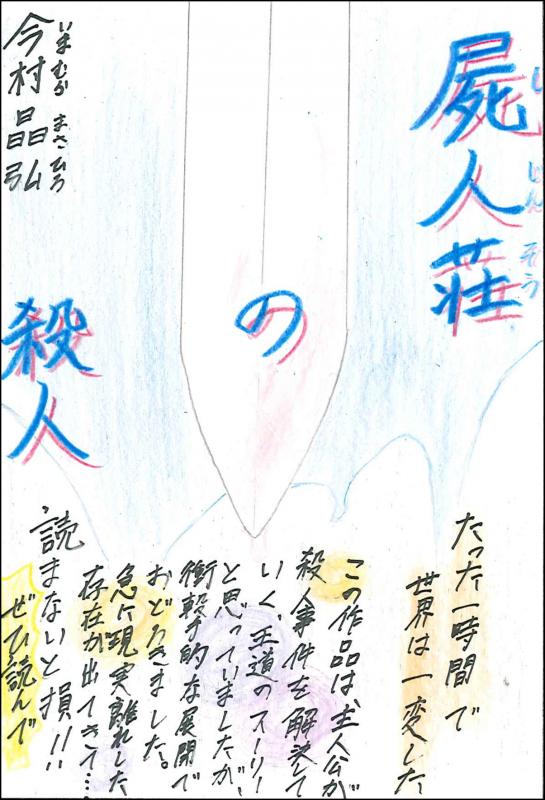 屍人荘
しじんそう
の
殺人
今村昌弘
いまむらまさひろ
たった一時間で
世界は一変した
この作品は、主人公が
殺人事件を解決して
いく、王道のストーリー
と思っていましたが、
衝撃的な展開で
おどろきました。
急に現実離れした
存在が出てきて…
読まないと損!!
ぜひ読んで